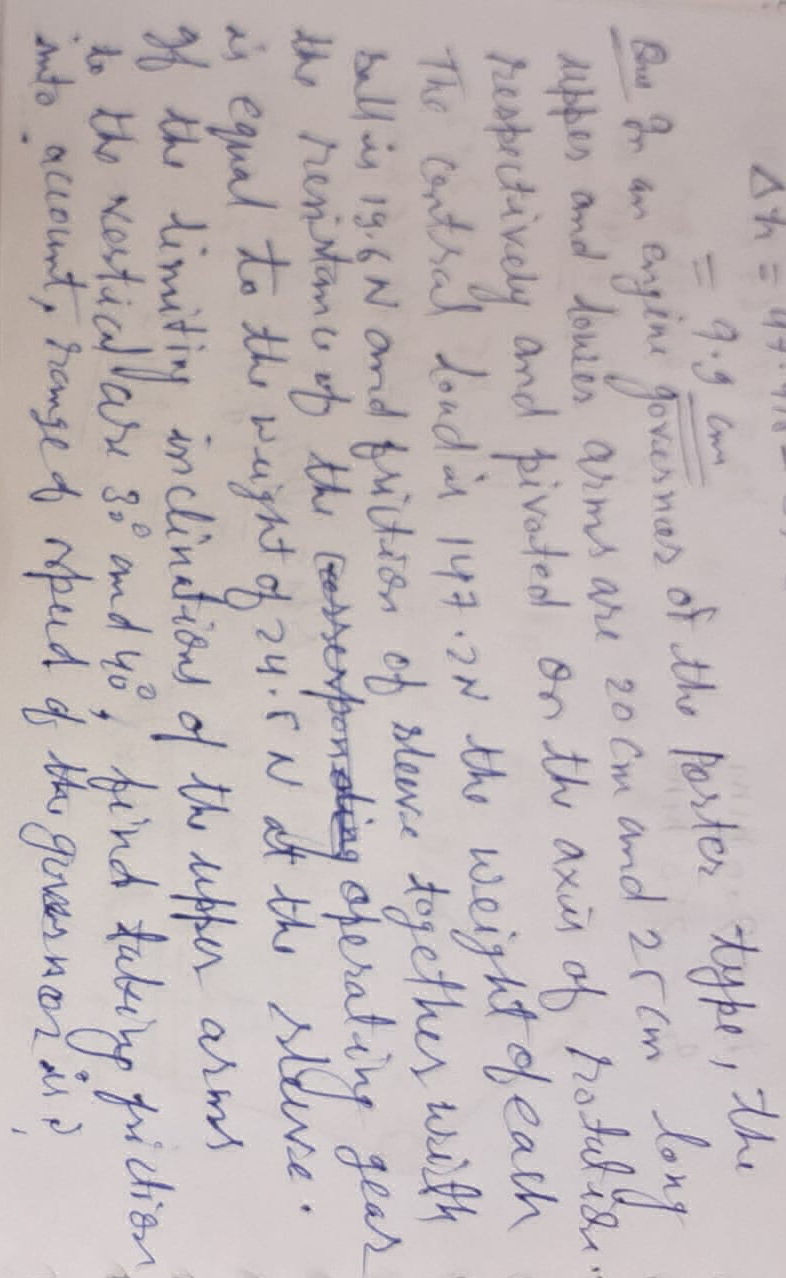 Δh =
= 9.9 cm
Que In an engine governor of the Porter type, the
upper and lower arms are 20 cm and 25 cm long
respectively and pivoted on the axis of rotation.
The central load is 147.2N the weight of each
ball is 19.6N and friction of sleeve together with
the resistance of the operating gear
is equal to the weight of 24.5 N at the sleeve.
If the limiting inclinations of the upper arms
to the vertical are 30° and 40°, find taking friction
into account, range of speed of the governor is?